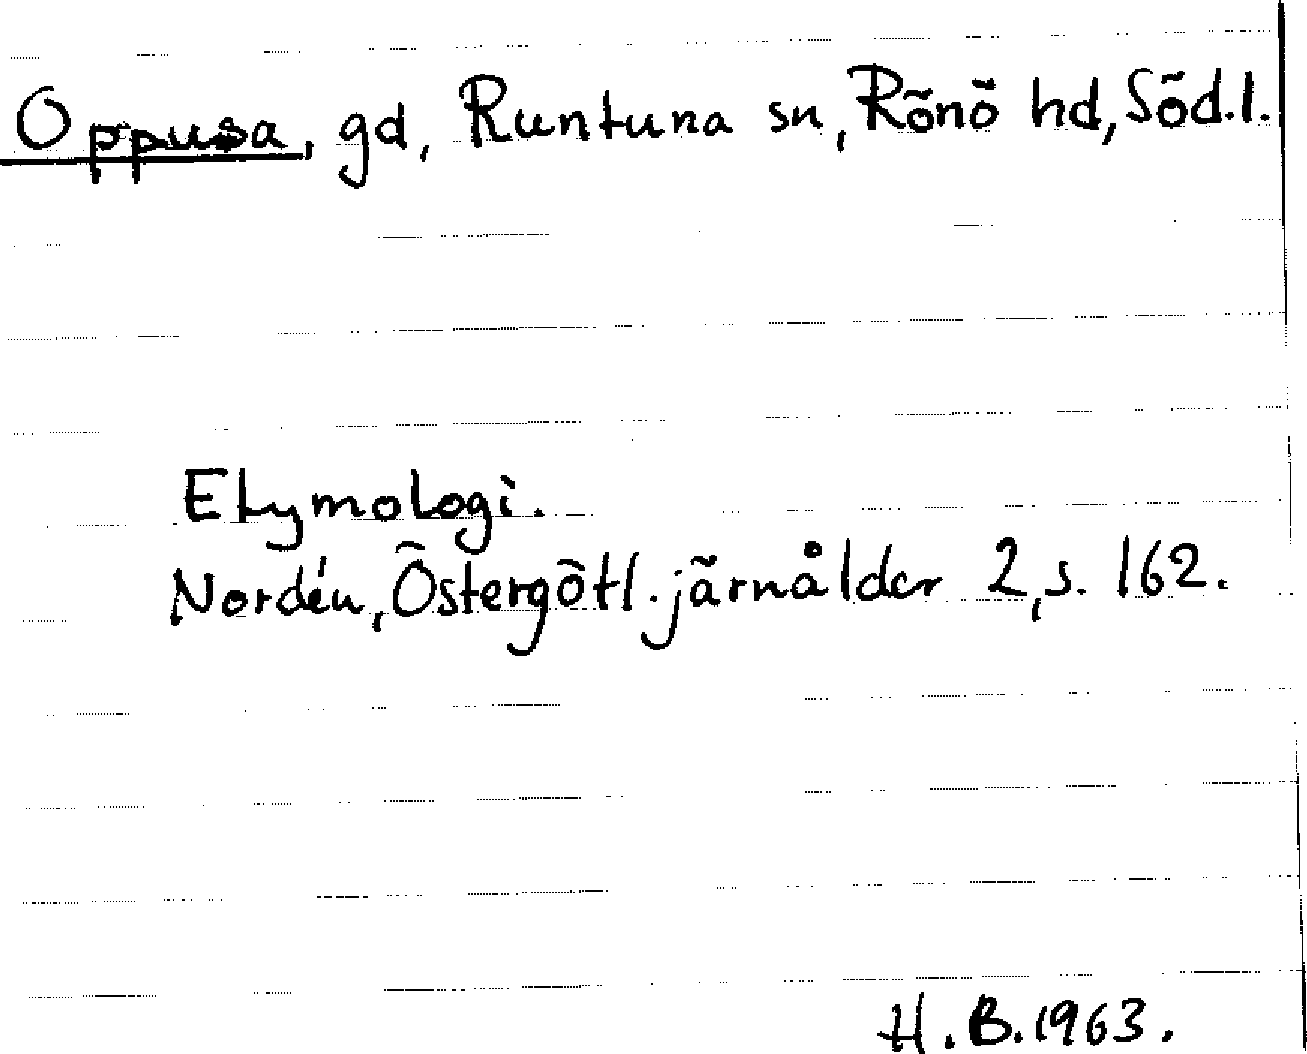 Oppusa, gd, Runtuna sn, Rönö hd, Söd.l.
Etymologi.
Nordén, Östergötl. järnålder 2, s. 162.
H.B. 1963.